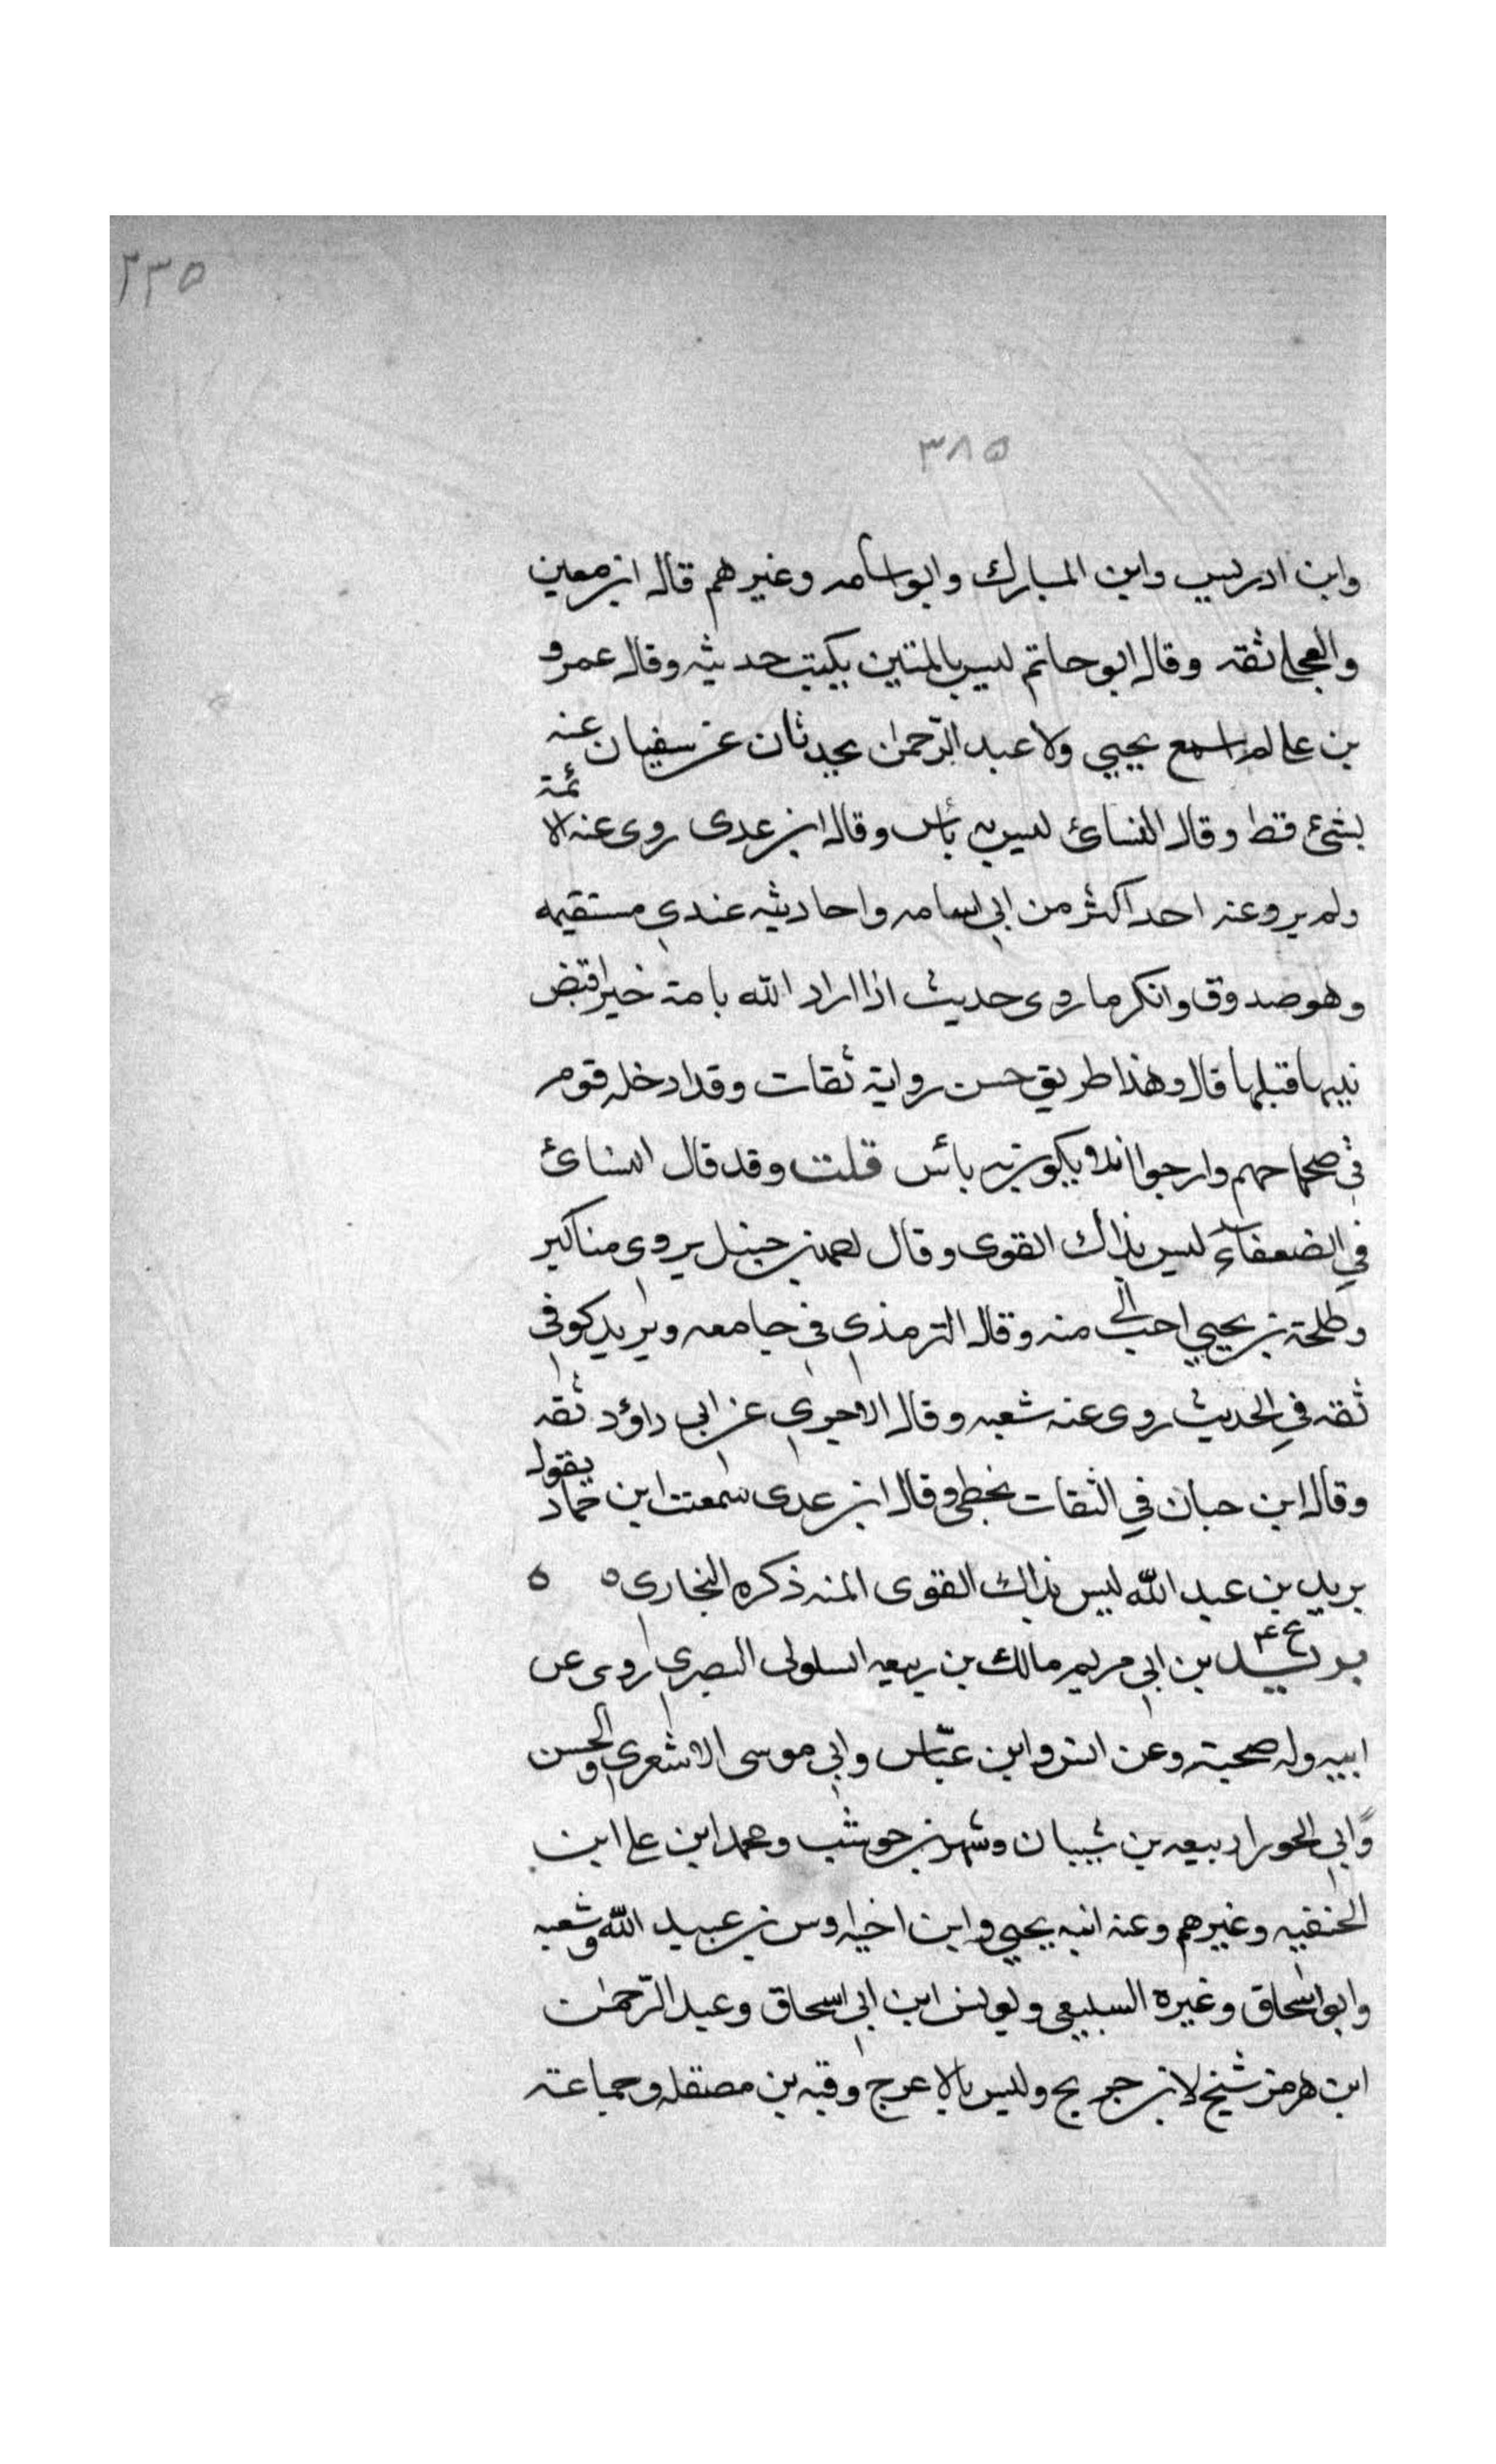 ٢٣٥
٣٨٥
وابن ادريس وابن المبارك وابو اسامه وغيرهم قال ابن معين
والعجلي ثقه وقال ابو حاتم ليس بالمتين يكتب حديثه وقال عمرو
بن علي لم اسمع يحيي ولا عبد الرحمن يحدثان عن سفيان عنه
بشئ قط وقال النسائ ليس به بأس وقال ابن عدى روى عنه الائمة
ولم يرو عنه احد اكثر من ابي اسامه واحاديثه عندي مستقيمه
وهو صدوق وانكر ما روى حديث اذا اراد الله بامة خيرا قبض
نبيها قبلها قال وهذا طريق حسن رواية ثقات وقد ادخله قوم
في صحاحهم وارجوا ان لا يكون به بأس قلت وقد قال النسائ
في الضعفاء ليس بذاك القوى وقال احمد بن حنبل يروى مناكير
وطلحة بن يحيي احب الي منه وقال الترمذي في جامعه وبريد كوفى
ثقه في الحديث روى عنه شعبه وقال الاجري عن ابي داؤد ثقه
وقال ابن حبان في الثقات يخطى وقال ابن عدى سمعت ابن حماد يقول
بريد بن عبد الله ليس بذاك القوى المنه ذكره البخاري ه ه
بريد بن ابي مريم مالك بن ربيعه السلولى البصري روى عن
ابيه وله صحبة وعن انس وابن عباس وابي موسى الاشعري والحسن
وابي الحورا ربيعه بن شيبان وشهر بن حوشب ومحمد ابن علي ابن
الحنفيه وغيرهم وعنه ابنه يحيي وابن اخيه اوس بن عبيد الله وشعبه
وابو اسحاق وغيره السبيعي ويونس ابن ابي اسحاق وعبد الرحمن
ابن هرمز شيخ لابن جريج وليس بالاعرج وقبه بن مصقله وجماعة